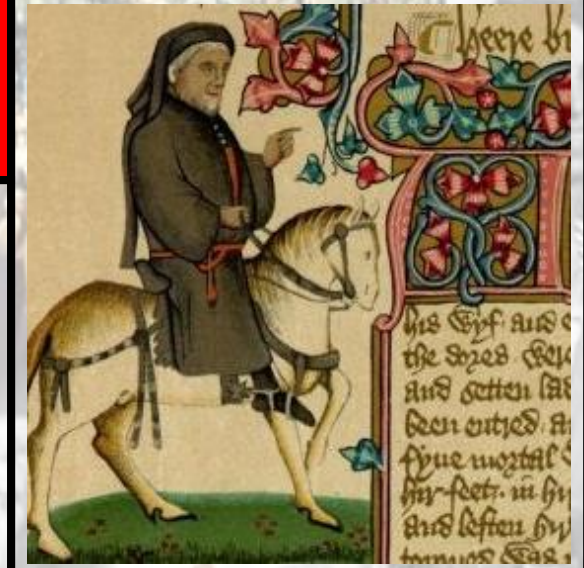 Heere bi
his wyf. and e
the dores wer
and setten lad
been entred. a
fyue mortal
hir feet. in hi
and leften hir